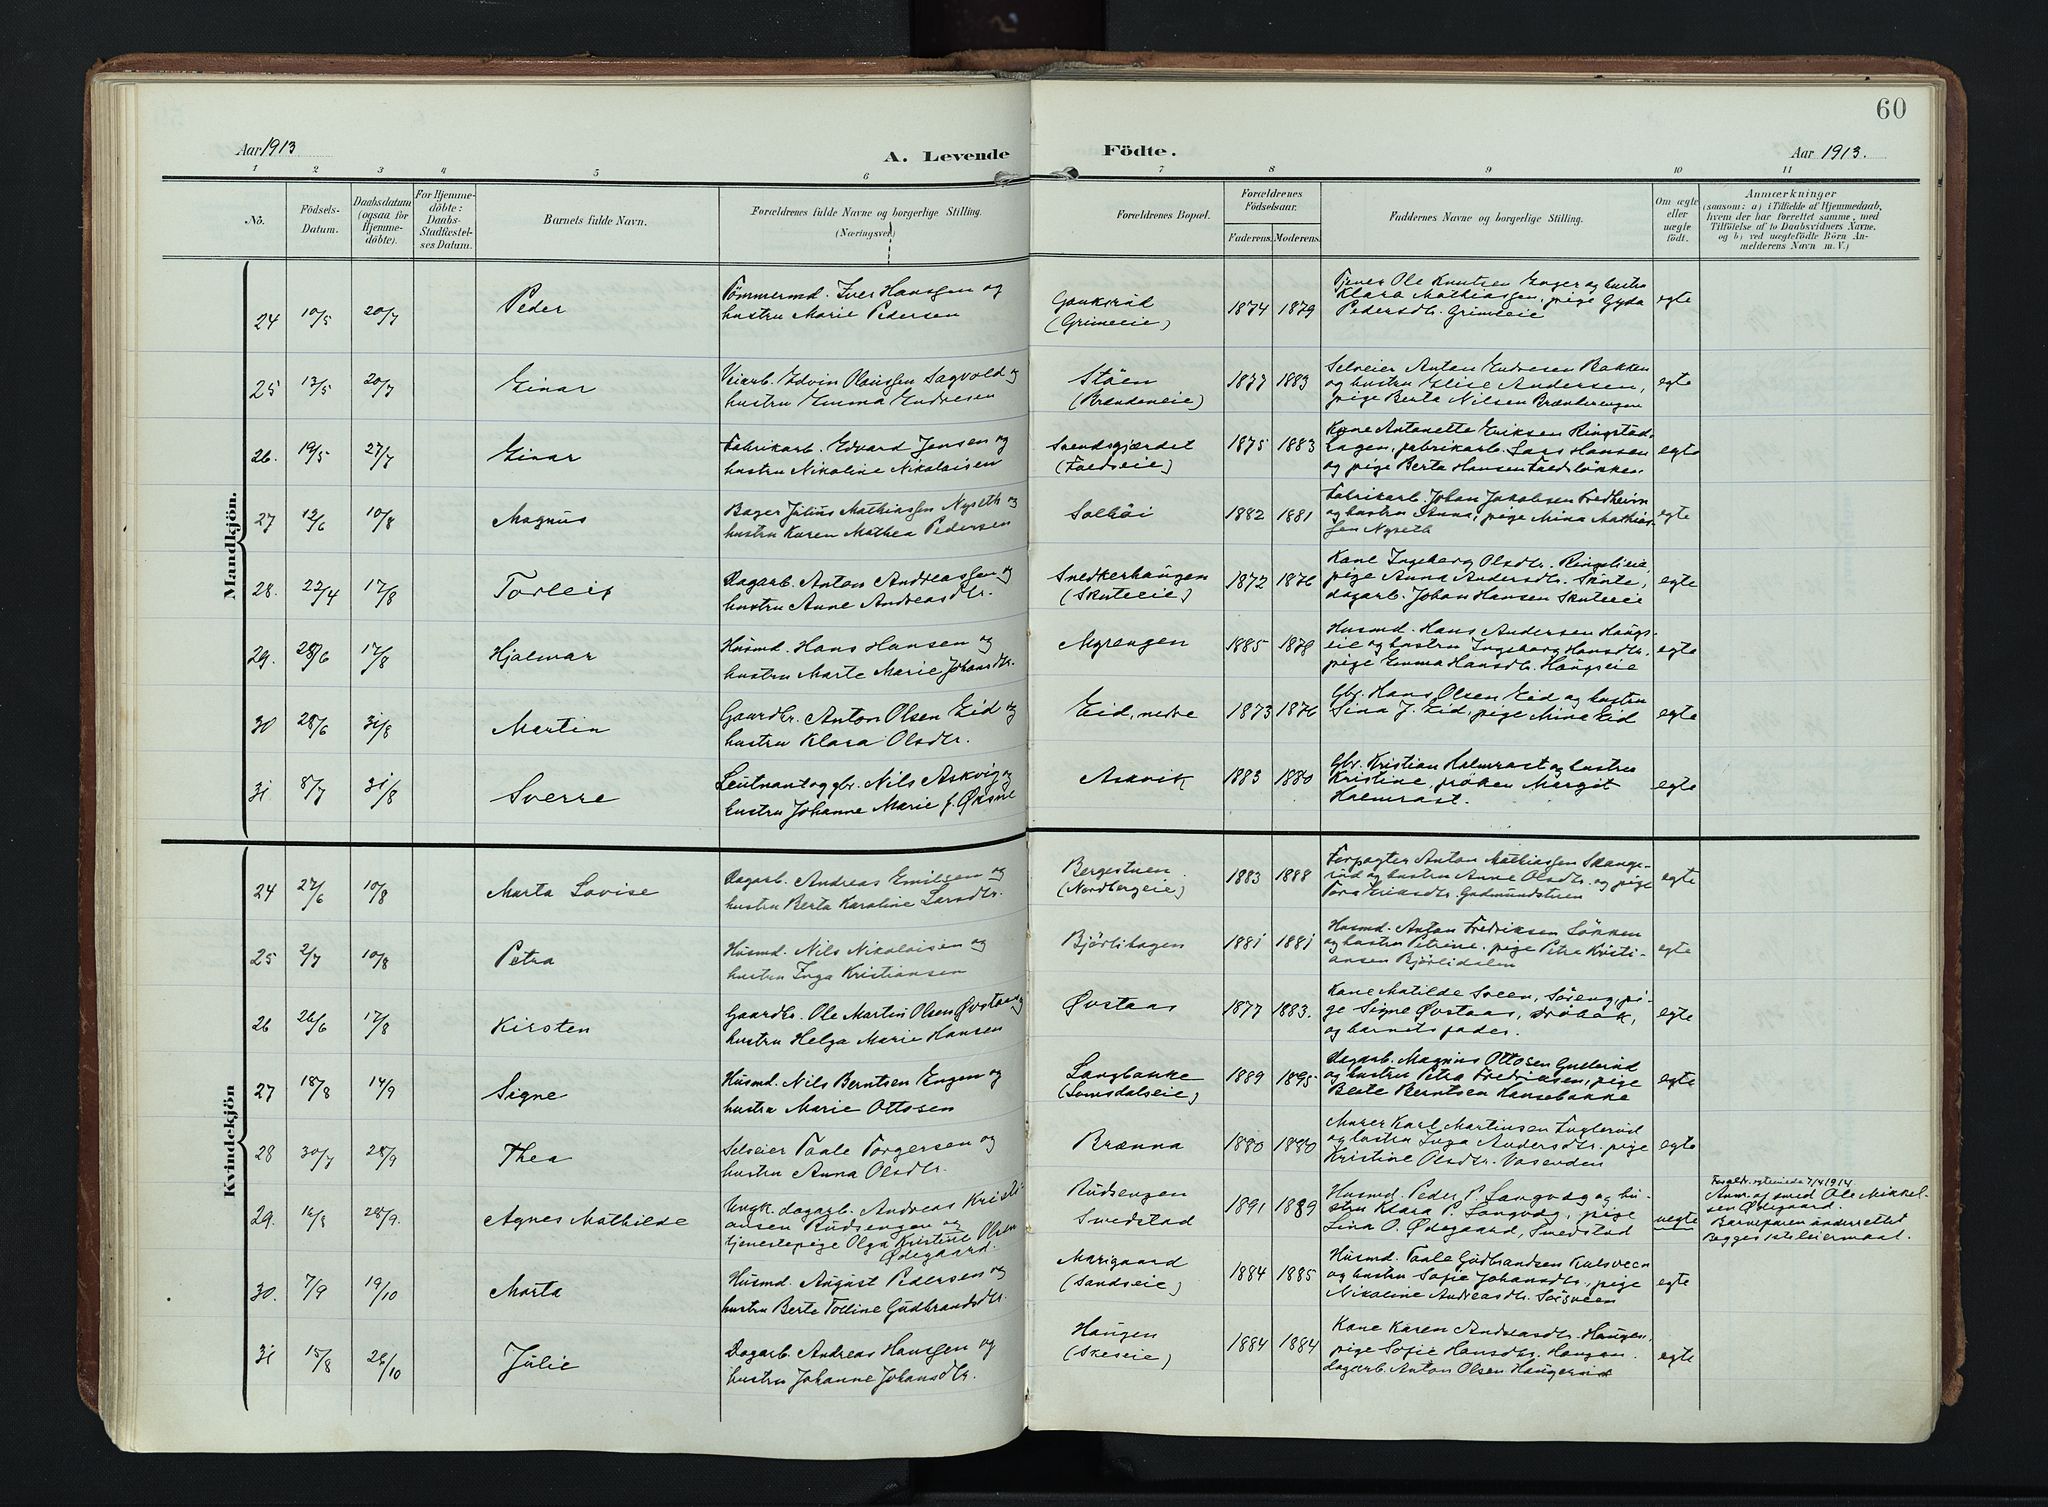 60
Aar 1913
A. Levende Födte.
Aar 1913.
1 2 3 4 5 6 7 8 9 10 11
No.
Födsels-Datum.
Daabsdatum (ogsaa for Hjemme-döbte).
For Hjemme-döbte: Daabs-Stadfæstel-ses Datum.
Barnets fulde Navn.
Forældrenes fulde Navne og borgerlige Stilling. (Næringsvei)
Forældrenes Bopæl.
Forældrenes Födselsaar.
Faderens. Moderens.
Faddernes Navne og borgerlige Stilling.
Om ægte eller uægte födt.
Anmærkninger
(saasom: a) i Tilfælde af Hjemmedaab, hvem der har forrettet samme, med Tilföielse af to Daabsvidners Navne. og b) ved uægtefödte Börn An-melderens Navn m. V.)
Mandkjön.
24 10/5 20/7 Peder
Tömmermd. Iver Hansen og
hustru Marie Pedersen
Gauksrud
(Grimeeie)
1874 1879
Ole Knutsen Enger og hustru
Klara Mathiassen, pige Gyda
Pedersdtr. Grimseie
egte
25 13/5 20/7 Einar
Veiarb. Edvin Olaussen Sagvold og
hustru Emma Endresen
Stöen
(Brændeneie)
1877 1883
Selveier Anton Endresen Bakken
og hustru Elise Andersen,
pige Berta Nilsen Brænderengen
egte
26. 19/5 27/7 Einar
Fabrikarb. Edvard Jensen og
hustru Nikoline Nikolaisen
Svendsgjærdet
(Faldseie)
1875 1883
Kone Antonette Eriksen Ringstad,
hagen, fabrikarb. Lars Hansen
og pige Berta Hansen
egte
27 12/6 10/8 Magnus
Bager Julius Mathiassen Nyseth og
hustru Karen Mathea Pedersen
Solhöi
1882 1881
Fabrikarb. Johan Jakobsen Fredheim
og hustru Anna, pige Mina Mathias-
sen Nyseth
egte
28. 22/4 17/8 Torleif
Dagarb. Anton Andreassen og
hustru Anne Andreasdtr.
Snedkerhaugen
(Skuteeie)
1872 1876
Kone Ingeborg Olsdtr. Ringelieie,
pige Anna Andersdtr. Skute,
dagarb. Johan Hansen Skuteeie
egte
29. 28/6 17/8 Hjalmar
Husmd. Hans Hansen og
hustru Marte Marie Johansdtr.
Myrengen
1885 1878
Husmd. Hans Andersen Haugs-
eie og hustru Ingeborg Hansdtr.
pige Emma Hansdtr. Haugseie
egte
30 28/6 31/8 Martin
Gaardbr. Anton Olsen Eid og
hustru Klara Olsdtr.
Eid, nedre
1873 1876
Gbr. Hans Olsen Eid og hustru
Lina J. Eid, pige Mina Eid
egte
31 8/7 31/8 Sverre
Leutnant og gbr. Nils Askvig og
hustru Johanne Marie f. Øksne
Askvik
1883 1880
Gbr. Kristian Halmrast og hustru
Kristine, fröken Margit
Halmrast.
egte
Kvindekjön
24 27/6 10/8 Marta Lovise
Dagarb. Andreas Emilsen og
hustru Berta Karoline Larsdtr.
Bergestuen.
(Nordbergeie)
1883 1888
Forpagter Anton Mathiassen Skange-
rud og hustru Anne Olsdtr. og pige
Tora Eriksdtr. Gudmundstuen
egte
25 2/7 10/8 Petra
Husmd. Nils Nikolaisen og
hustru Inga Kristiansen
Björlihagen
1881 1881
Husmd. Anton Fredriksen Løkken
og hustru Petrine, pige Petra Kristi-
ansen Björlidalen
egte
26 26/6 17/8 Kirsten
Gaardbr. Ole Martin Olsen Øvstaas og
hustru Helga Marie Hansen
Øvstaas
1877 1883.
Kone Matilde Sveen, Söreng, pi-
ge Signe Øvstaas, Dröbak,
og barnets fader.
egte
27 18/8 14/9 Signe
Husmd. Nils Berntsen Engen og
hustru Marie Ottosen
Langbakke
(Lomsdalseie)
1889 1895.
Dagarb. Magnus Ottosen Gullerud
og hustru Petra Fredriksen, pige
Berte Berntsen Hansebakke
egte
28 30/7 28/9 Thea
Selveier Paale Torgersen og
hustru Anna Olsdtr.
Brænna
1880 1880
Murer Karl Martinsen Fuglerud
og hustru Inga Andersdtr. pige
Kristine Olsdtr. Vasenden
egte
29. 16/8 28/9. Agnes Mathilde
Ungk. dagarb. Andreas Kristi-
ansen Rudsengen og
tjenestepige Olga Kristine Olsen
Ødegaard.
Rudsengen
Smedstad
1891 1889
Husmd. Peder P. Langvdg og hu-
stru Klara P. Langvdg, pige
Lina O. Ødegaard, Smedstad
uegte
Foræld. egteviede 7/4 1914.
Anm. af smed Ole Mikkel-
sen Ødegaard.
Barnefaren underrettet
Begges 1ste leiermaal.
30. 7/9 19/10 Marta
Husmd. August Pedersen og
hustru Berte Tolline Gudbrandsdtr.
Marigaard
(Sandseie)
1884 1885
Husmd. Paale Gudbrandsen Kalsveen
og hustru Sofie Johansdtr., pige
Nikoline Andreasdtr. Sörsveen
egte
31 15/8 26/10 Julie
Dagarb. Andreas Hansen og
hustru Johanne Johansdtr.
Haugen
(Skeseie)
1884 1884
Kone Karen Andreasdtr. Haugen,
pige Sofie Hansdtr. Haugen.
dagarb. Anton Olsen Haugerud
egte